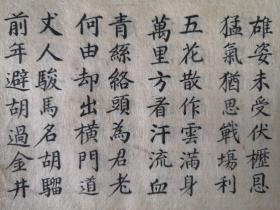 雄姿未受伏櫪恩
猛氣猶思戰塲利
五花散作雲滿身
萬里方看汗流血
青絲絡頭為君老
何由却出橫門道
丈人駿馬名胡騮
前年避胡過金牛